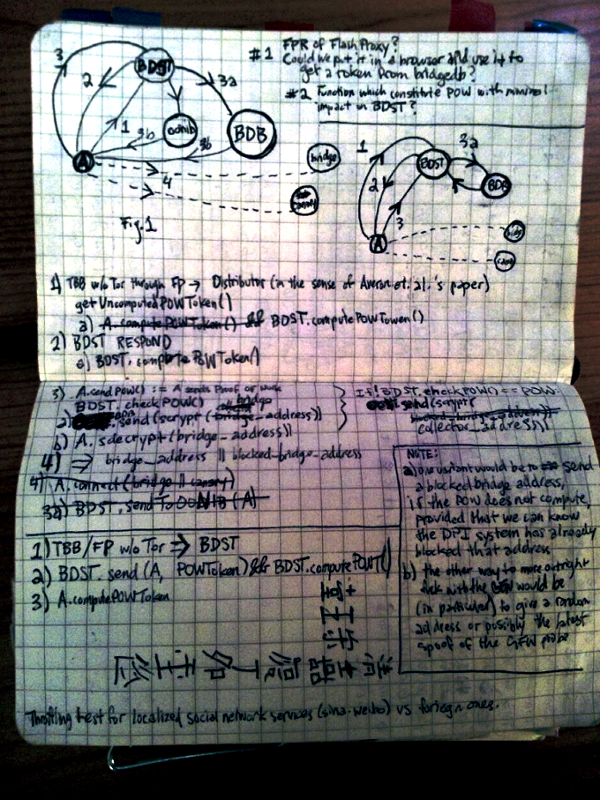 #1 FPR of Flash Proxy?
Could we put it in a browser and use it to
get a token from bridgedb?
#2 Function which constitute POW with minimal
impact on BDST?
3
2
1
BDST
3a
3b
3b
BDB
A
4
bridge
Fig.1
1
2
3
3a
BDST
BDB
A
1) TBB w/o Tor through FP → Distributor (in the sense of et. al.'s paper)
getUncomputedPOWToken()
a) A.computePOWToken() && BDST.computePOWToken()
2) BDST RESPOND
a) BDST.computePOWToken()
3) A.sendPOW() := A sends Proof of Work
BDST.checkPOW()
a) .send(scrypt(bridge_address))
b) A.sdecrypt(bridge_address)
4) ⇒ bridge_address || blocked_bridge_address
4) A.connect(bridge || canary)
3a) BDST.sendTo (A)
If !BDST.checkPOW() == POW:
send(scrypt(
blocked_bridge_address))
collector_address))
NOTE:
a) one variant would be to send
a blocked bridge address,
if the POW does not compute,
provided that we can know
the DPI system has already
blocked that address
b) the other way to more outright
fuck with the GFW would be
(in particular) to give a random
address or possibly the latest
spoof of the GFW probe
1) TBB/FP w/o Tor ⇒ BDST
2) BDST.send(A, POWToken) && BDST.computePOWT()
3) A.computePOWToken
Throttling test for localized social network services (sina-weibo) vs foriegn ones.